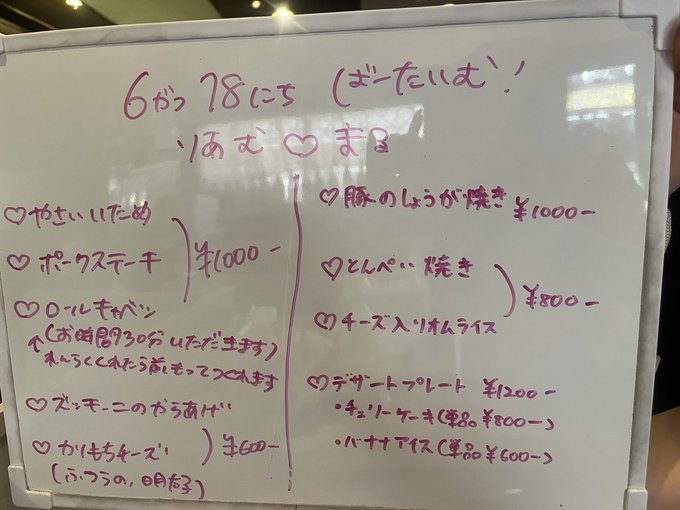 6がつ18にち ばーたいむ!
りあむ♡まる
♡やさいいため
♡ポークステーキ
¥1000-
♡ロールキャベツ
↑(お時間30分いただきます)
れんらくくれたら前もってつくれます
♡ズッキーニのからあげ
♡かりもちチーズ
¥600-
(ふつうの、明太子)
♡豚のしょうが焼き ¥1000-
♡とんぺい焼き
¥800-
♡チーズ入りオムライス
♡デザートプレート ¥1200-
・チェリーケーキ(単品¥800-)
・バナナアイス(単品¥600-)